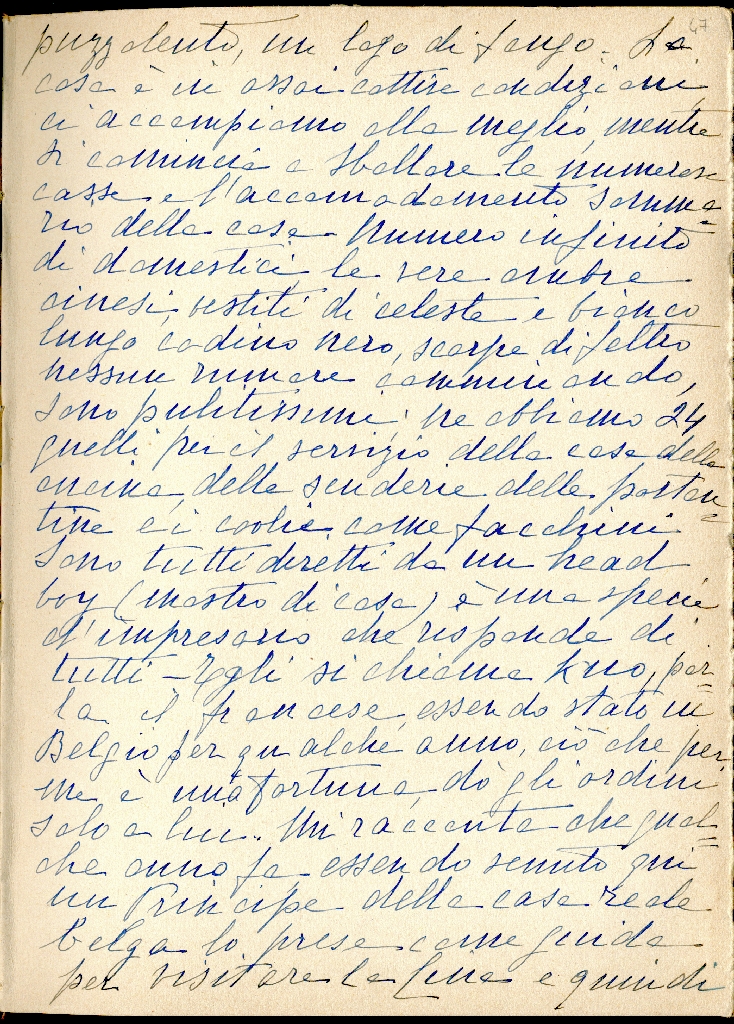 47
puzzolento, un lago di fango. La
casa è in assai cattive condizioni,
ci accampiamo alla meglio, mentre
si comincia a sballare le numerose
casse e l'accomodamento somma=
rio della casa. Numero infinito
di domestici, le vere ombre
cinesi, vestiti di celeste e bianco
lungo codino nero, scarpe di feltro
nessun rumore camminando,
sono pulitissimi; ne abbiamo 24
quelli per il servizio della casa della
cucina, delle scuderie delle portan=
tine e i coolie come facchini
Sono tutti diretti da un head
boy (mastro di casa) è una specie
d'impresario che risponde di
tutti – Egli si chiama Kuo, par=
la il francese, essendo stato in
Belgio per qualche anno, ciò che per
me è una fortuna, dò gli ordini
solo a lui. Mi racconta che qual=
che anno fa essendo venuto qui
un Principe della casa reale
belga lo prese come guida
per visitare la Cina e quindi